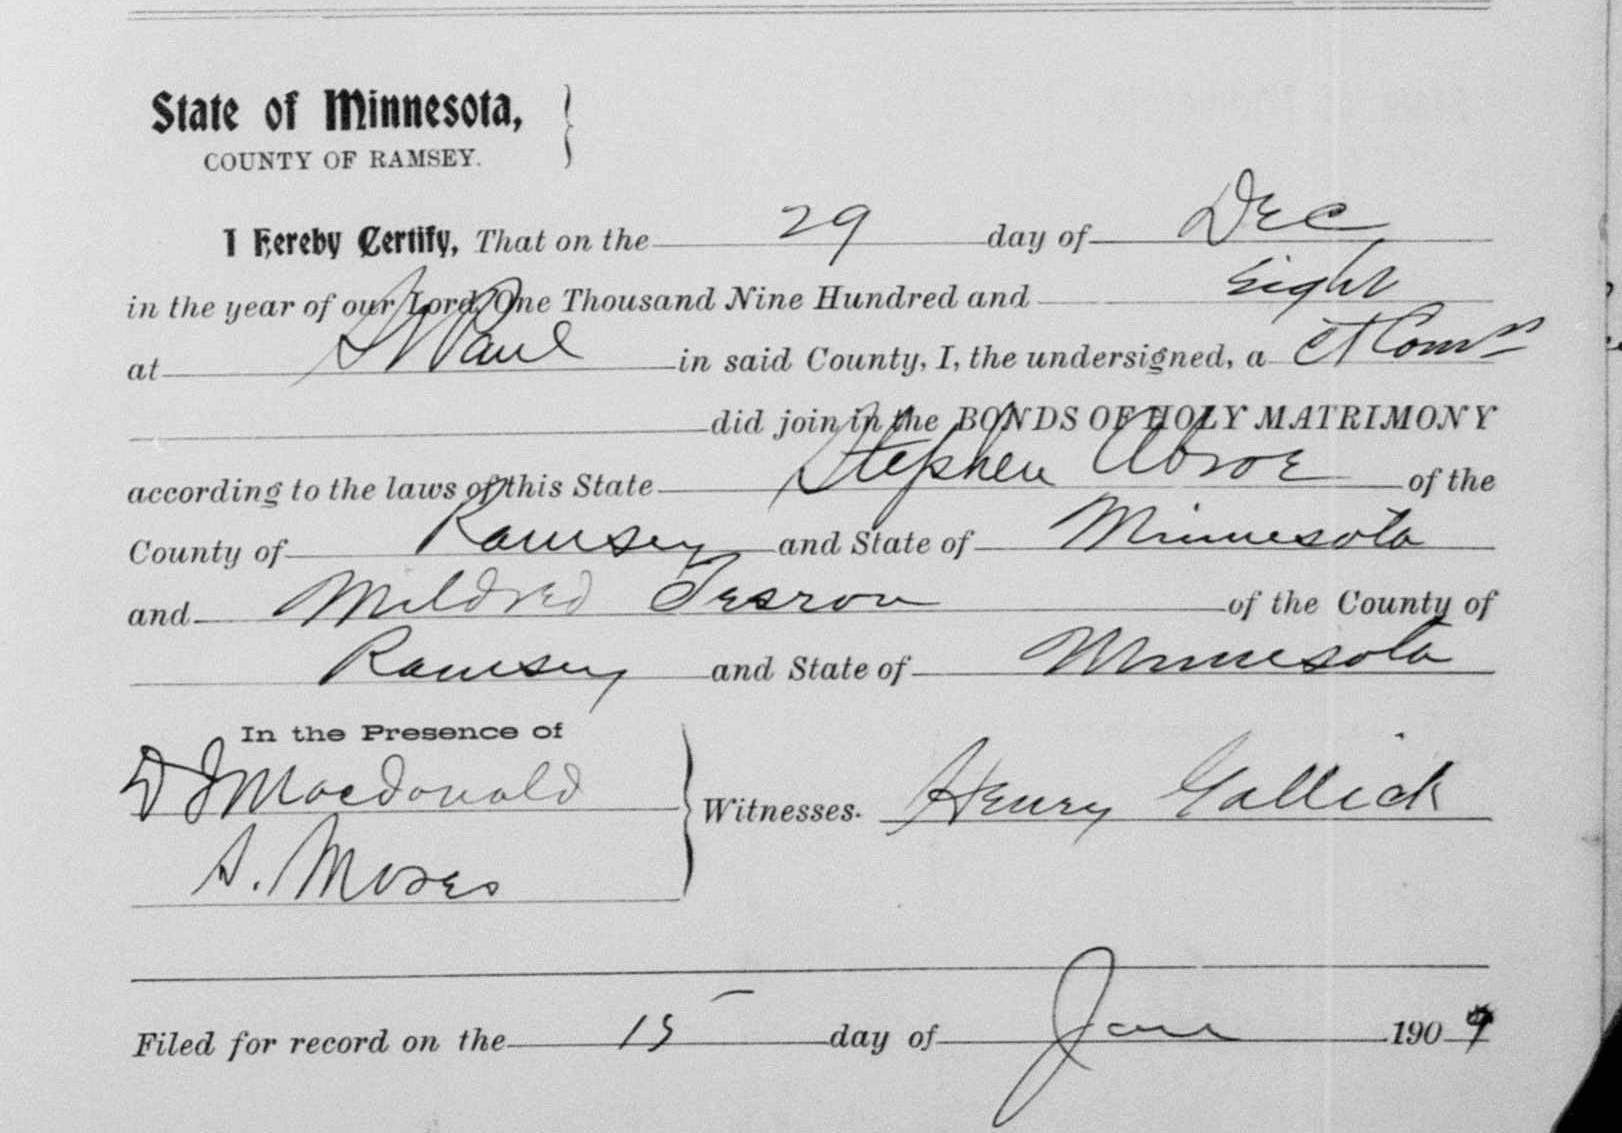 State of Minnesota,
COUNTY OF RAMSEY.
I Hereby Certify, That on the 29 day of Dec
in the year of our Lord, One Thousand Nine Hundred and Eight
at St Paul in said County, I, the undersigned, a Ct Comr
did join in the BONDS OF HOLY MATRIMONY
according to the laws of this State Stephen Abroe of the
County of Ramsey and State of Minnesota
and Mildred Tesrow of the County of
Ramsey and State of Minnesota
In the Presence of
D J Macdonald
Witnesses. Henry Gallick
S. Moses
Filed for record on the 15 day of Jan 1909